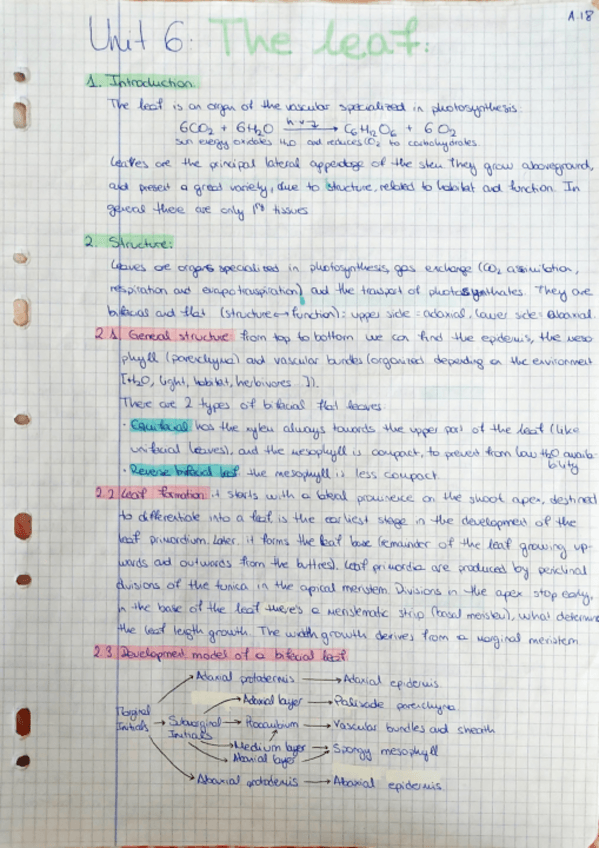 A.18
Unit 6: The leaf.
1. Introduction
The leaf is an organ of the vascular specialized in photosynthesis:
6CO2 + 6H2O → C6H12O6 + 6O2
sun energy oxidates H2O and reduces CO2 to carbohydrates.
Leaves are the principal lateral appendage of the stem. They grow aboveground,
and present a great variety, due to structure, related to habitat and function. In
general there are only 1ry tissues
2. Structure:
Leaves are organs specialized in photosynthesis, gas exchange (CO2 assimilation,
respiration and evapotraspiration) and the transport of photosynthates. They are
bifacial and flat (structure↔function): upper side = adaxial, lower side = abaxial.
2.1 General structure from top to bottom we can find the epidermis, the meso
phyll (parenchyma) and vascular bundles (organised depending on the environment
[H2O, light, habitat, herbivores...]).
There are 2 types of bifacial flat leaves
· Equifacial has the xylem always towards the upper part of the leaf (like
unifacial leaves), and the mesophyll is compact, to prevent from low H2O availa-
bility
· Reverse bifacial leaf the mesophyll is less compact
2.2 Leaf formation it starts with a lateral prominence on the shoot apex, destined
to differentiate into a leaf, is the earliest stage in the development of the
leaf primordium. Later, it forms the leaf base (remainder of the leaf growing up-
wards and outwords from the buttres). Leaf primordia are produced by periclinal
divisions of the tunica in the apical meristem. Divisions in the apex stop early,
in the base of the leaf there's a meristematic strip (basal meristem), what determine
the leaf length growth. The width growth derives from a marginal meristem
2.3 Development model of a bifacial leaf
Adaxial protodermis → Adaxial epidermis
Adaxial layer → Palisade parenchyma
Marginal Initials → Submarginal Initials → Procambium → Vascular bundles and sheath
Medium layer → Spongy mesophyll
Abaxial layer
Abaxial protodermis → Abaxial epidermis